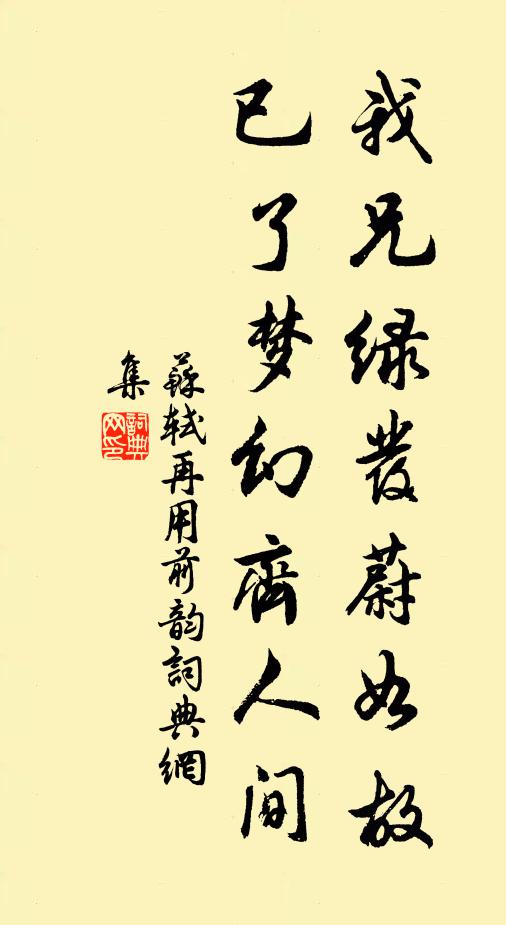 我兄绿发蔚如故
已了梦幻齊人间
蘇轼再用前韵詞典網
集
詞典
网印